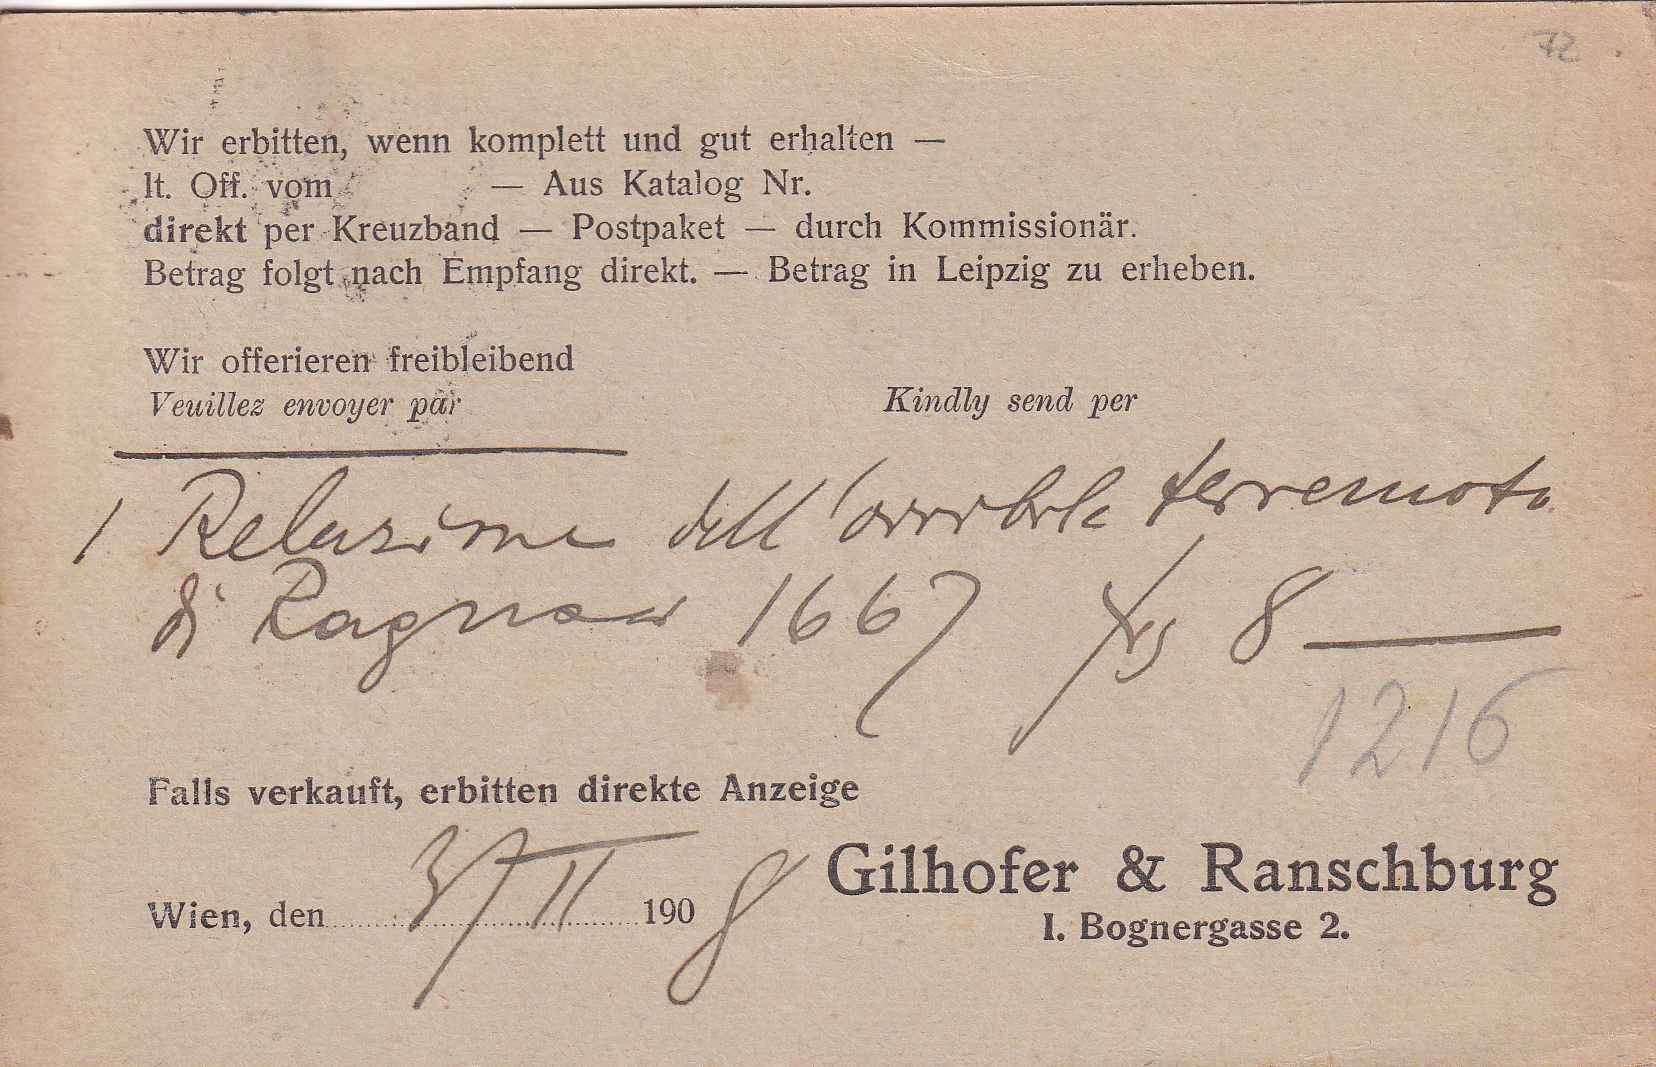 72
Wir erbitten, wenn komplett und gut erhalten —
lt. Off. vom — Aus Katalog Nr.
direkt per Kreuzband — Postpaket — durch Kommissionär.
Betrag folgt nach Empfang direkt. — Betrag in Leipzig zu erheben.
Wir offerieren freibleibend
Veuillez envoyer par Kindly send per
1 Relazione dell'orribile terremoto
di Ragusa 1667 frs 8 —
1216
Falls verkauft, erbitten direkte Anzeige
Gilhofer & Ranschburg
Wien, den 3/II 1908
I. Bognergasse 2.